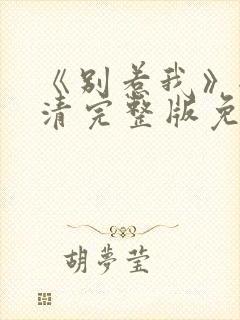 《别惹我》
清完整版免
胡梦莹